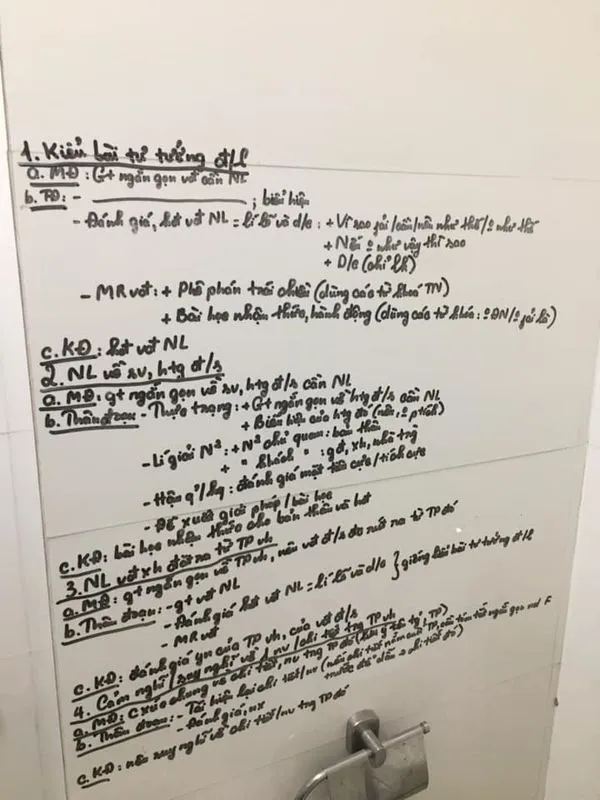 1. Kiểu bài tư tưởng đ/l
a. MĐ: Gt ngắn gọn vđ cần NL
b. TĐ: - ; biểu hiện
- Đánh giá, kết vđ NL = lí lẽ và d/c: + Vì sao fải /cần/nên như thế/ như thế
+ Nếu như vậy thì sao
+ D/c
- MR vđ: + Phê phán trái chiều (dùng các từ khoá TN)
+ Bài học nhận thức, hành động (dùng các từ khóa: ĐN/ fải là)
c. KĐ: kết vđ NL
2. NL về sv, htg đ/s
a. MĐ: gt ngắn gọn về sv, htg đ/s cần NL
b. Thân đoạn: - Thực trạng: + Gt ngắn gọn về htg đ/s cần NL
+ Biểu hiện của htg đó
- Lí giải N²: + N² chủ quan: bản thân
+ " khách " : gđ, xh, nhà trg
- Hậu q'/kq: đánh giá mặt tiêu cực/tích cực
- Đề xuất giải pháp/bài học
c. KĐ: bài học nhận thức cho bản thân và kết
3. NL vđ xh đặt ra từ TP vh
a. MĐ: gt ngắn gọn về TP vh, nêu vđ đ/s đc rút ra từ TP đó
b. Thân đoạn: - gt vđ NL
- Đánh giá kết vđ NL = lí lẽ và d/c } giống kiểu bài tư tưởng đ/l
- MR vđ
c. KĐ: đánh giá yn của TP vh, của vđ đ/s
4. Cảm nghĩ / suy nghĩ về 1 nv / chi tiết trg TP vh
a. MĐ: C xúc chung về chi tiết, nv trg TP đó
b. Thân đoạn: - Tái hiện lại chi tiết/nv
- Đánh giá, nx
c. KĐ: nêu suy nghĩ về chi tiết/nv trg TP đó